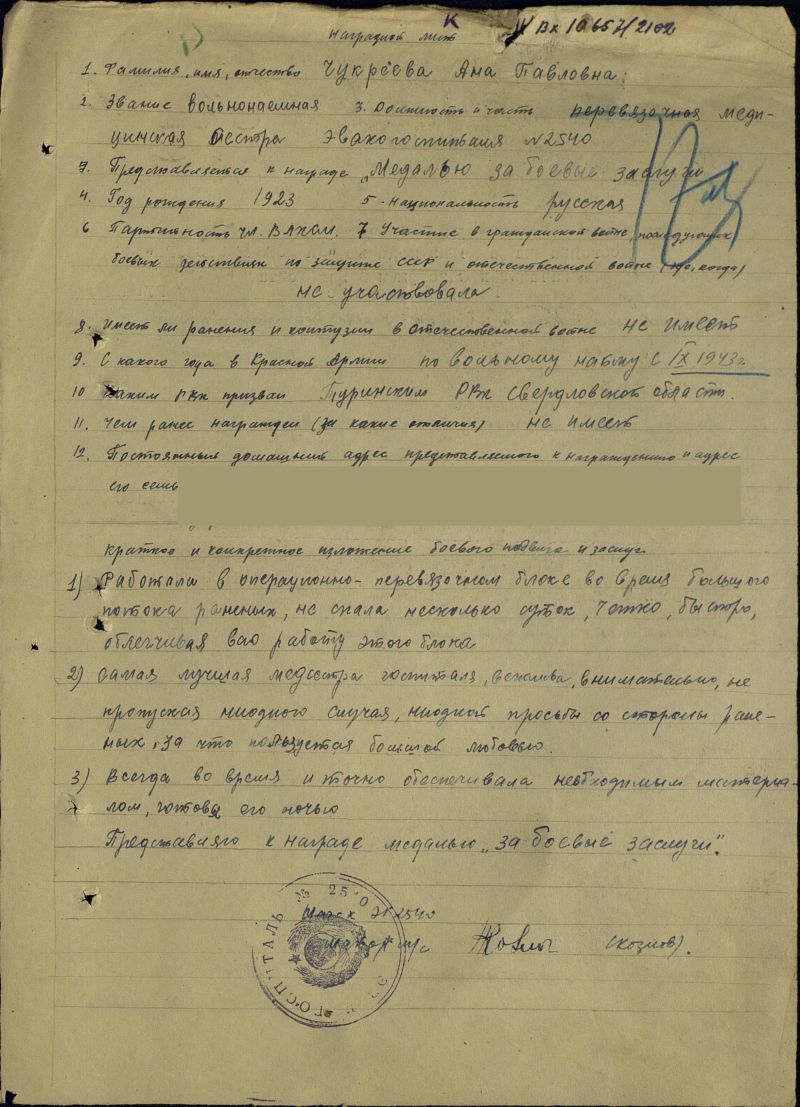 К
Вх 10657/2102
Наградной лист
1. Фамилия, имя, отчество Чукреева Ана Павловна.
2. Звание вольнонаемная 3. Должность и часть перевязочная меди-
цинская сестра Эвакогоспиталя №2540
7. Представляется к награде „Медалью за боевые заслуги
4. Год рождения 1923 5-национальность русская
6 Партийность чл. ВЛКСМ. 7 Участие в гражданской войне, последующих
боевых действиях по защите СССР и отечественной войне (где, когда)
не участвовала.
8. Имеет ли ранения и контузии в отечественной войне не имеет
9. С какого года в Красной Армии по вольному найму с IX 1943 г.
10 Каким РВК призван Туринским РВК Свердловской области.
11. Чем ранее награжден (за какие отличия) не имеет
12. Постоянный домашний адрес представляемого к награждению и адрес
его семьи
краткое и конкретное изложение боевого подвига и заслуг.
1) Работала в операционно-перевязочном блоке во время большого
потока раненых, не спала несколько суток, четко, быстро,
облегчивая всю работу этого блока
2) Самая лучшая медсестра госпиталя, вежлива, внимательно, не
пропуская ниодного случая, ниодной просьбы со стороны ране-
ных, за что пользуется большой любовью.
3) Всегда во время и точно обеспечивала необходимым материа-
лом, готова его ночью
Представляю к награде медалью „за боевые заслуги".
ГОСПИТАЛЬ № 2540
Начэк ЭГ 2540
майор м/с (Козлов).